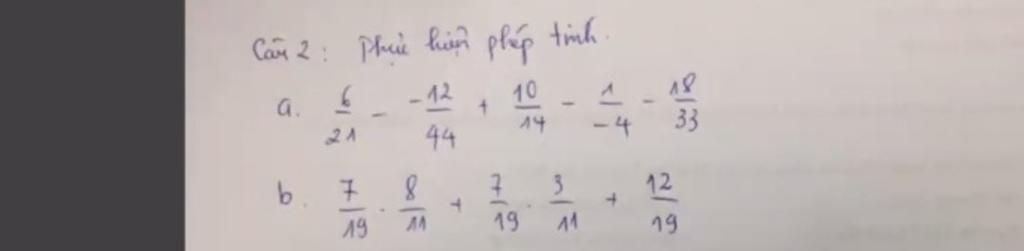 Câu 2: Thực hiện phép tính.
a. 6/21 - -12/44 + 10/14 - 1/-4 - 18/33
b. 7/19 . 8/11 + 7/19 . 3/11 + 12/19